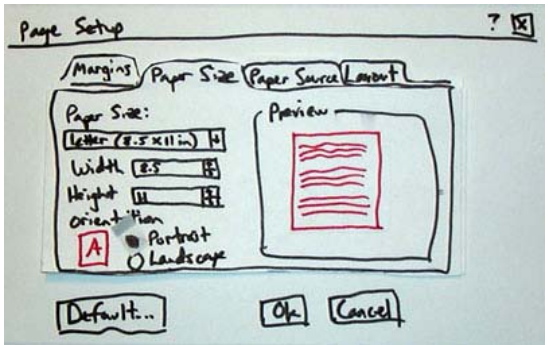 Page Setup ? X
Margins Paper Size Paper Source Layout
Paper Size: Preview
Letter (8.5 x 11 in)
Width 8.5
Height 11
orientition
A Portrait
Landscape
Default... Ok Cancel